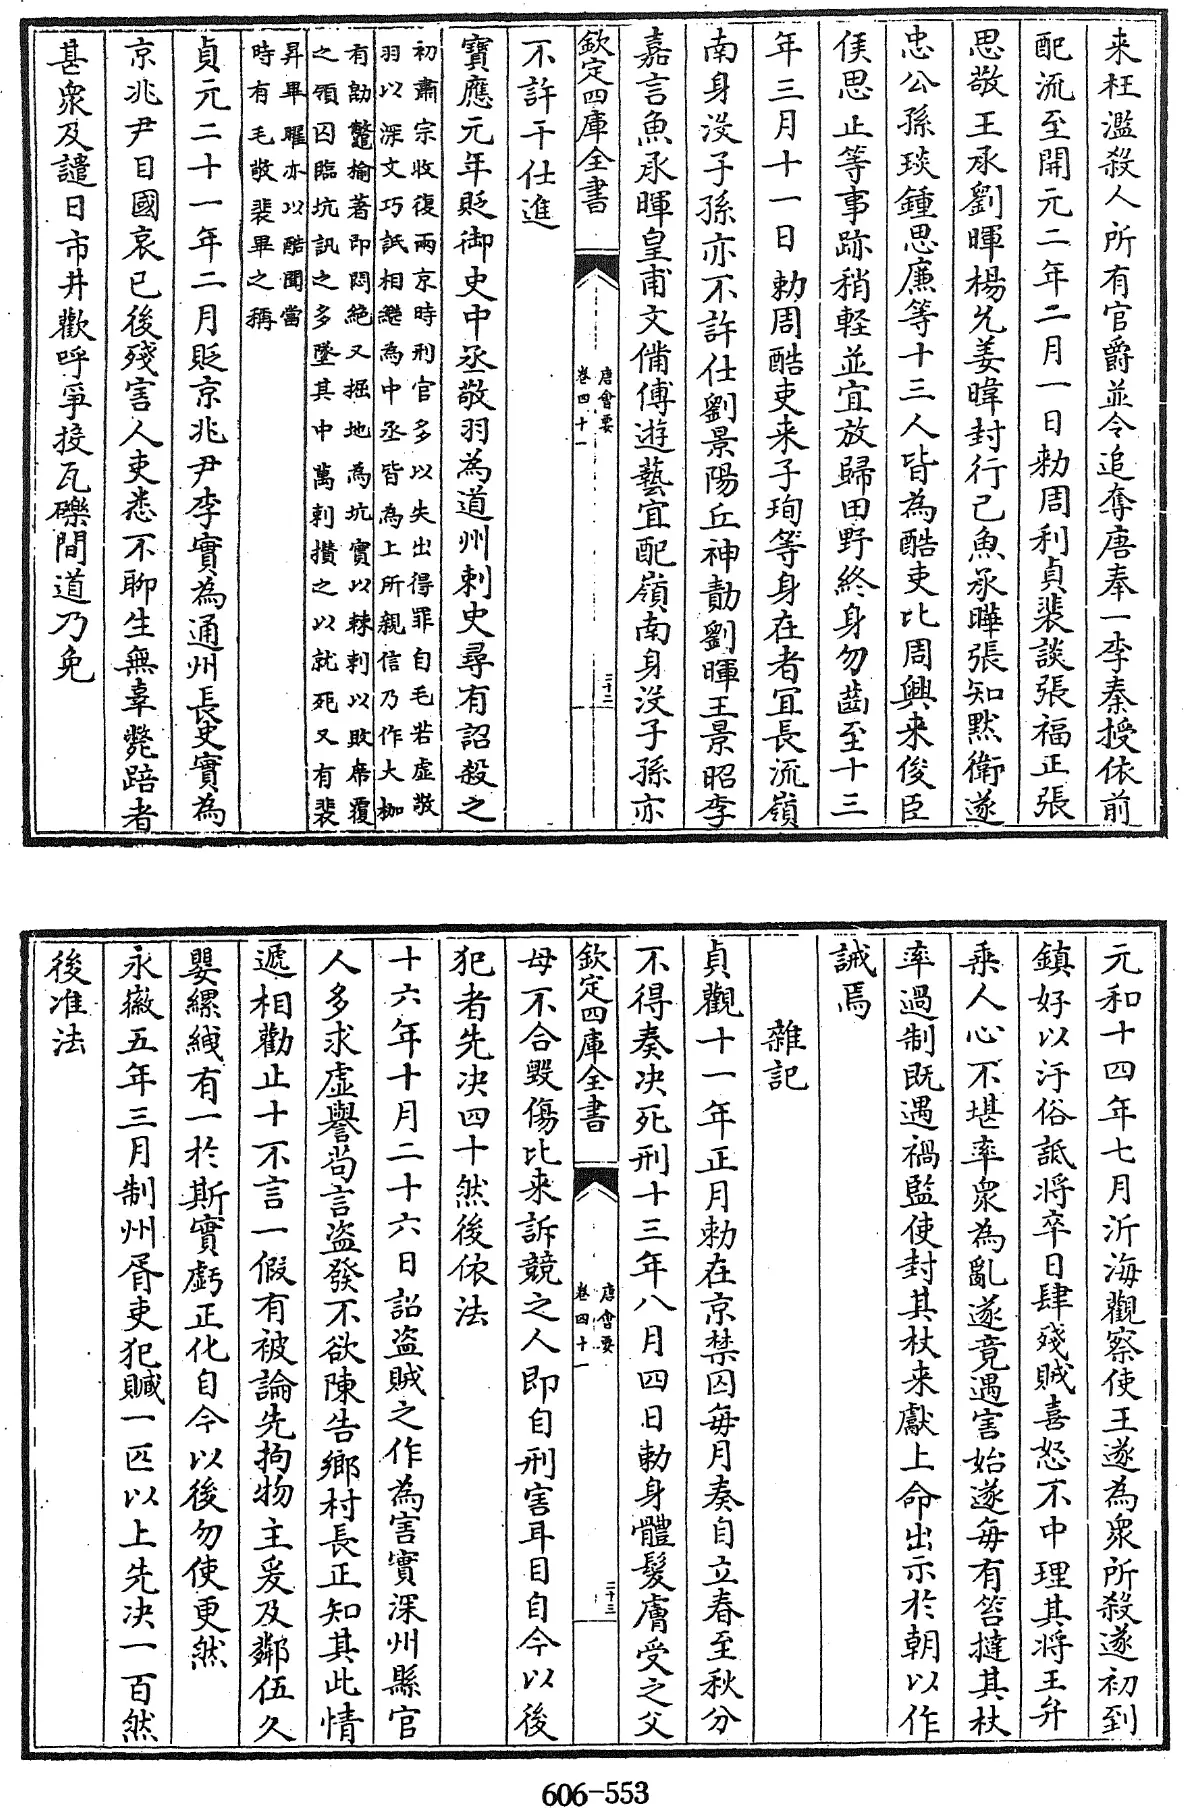 来枉濫殺人所有官爵並令追奪唐奉一李秦授依前
配流至開元二年二月一日勅周利貞裴談張福正張
思敬王承劉暉楊允姜暐封行己魚承曄張知黙衛遂
忠公孫琰鍾思廉等十三人皆為酷吏比周興来俊臣
侯思止等事跡稍輕並宜放歸田野終身勿齒至十三
年三月十一日勅周酷吏来子珣等身在者宜長流嶺
南身没子孫亦不許仕劉景陽丘神勣劉暉王景昭李
嘉言魚承暉皇甫文備傅遊藝宜配嶺南身没子孫亦
欽定四庫全書
唐會要
卷四十一
三十二
不許干仕進
寶應元年貶御史中丞敬羽為道州刺史尋有詔殺之
初肅宗收復兩京時刑官多以失出得罪自毛若虚敬
羽以深文巧詆相繼為中丞皆為上所親信乃作大枷
有勑鼈楡著即悶絶又掘地為坑實以棘刺以敗席覆
之領囚臨坑訊之多墜其中萬刺攢之以就死又有裴
昇畢曜亦以酷聞當
時有毛敬裴畢之稱
貞元二十一年二月貶京兆尹李實為通州長史實為
京兆尹自國哀已後殘害人吏悉不聊生無辜斃踣者
甚衆及譴日市井歡呼爭投瓦礫間道乃免
元和十四年七月沂海觀察使王遂為衆所殺遂初到
鎮好以汙俗詆將卒日肆殘賊喜怒不中理其將王弁
乗人心不堪率衆為亂遂竟遇害始遂毎有笞撻其杖
率過制既遇禍監使封其杖来獻上命出示於朝以作
誡焉
雜記
貞觀十一年正月勅在京禁囚毎月奏自立春至秋分
不得奏決死刑十三年八月四日勅身體髮膚受之父
欽定四庫全書
唐會要
卷四十一
三十三
母不合毀傷比来訴競之人即自刑害耳目自今以後
犯者先决四十然後依法
十六年十月二十六日詔盗賊之作為害實深州縣官
人多求虚譽尚言盗發不欲陳告鄉村長正知其此情
遞相勸止十不言一假有被論先拘物主爰及鄰伍久
嬰縲絏有一於斯實虧正化自今以後勿使更然
永徽五年三月制州胥吏犯贓一匹以上先决一百然
後准法
606-553